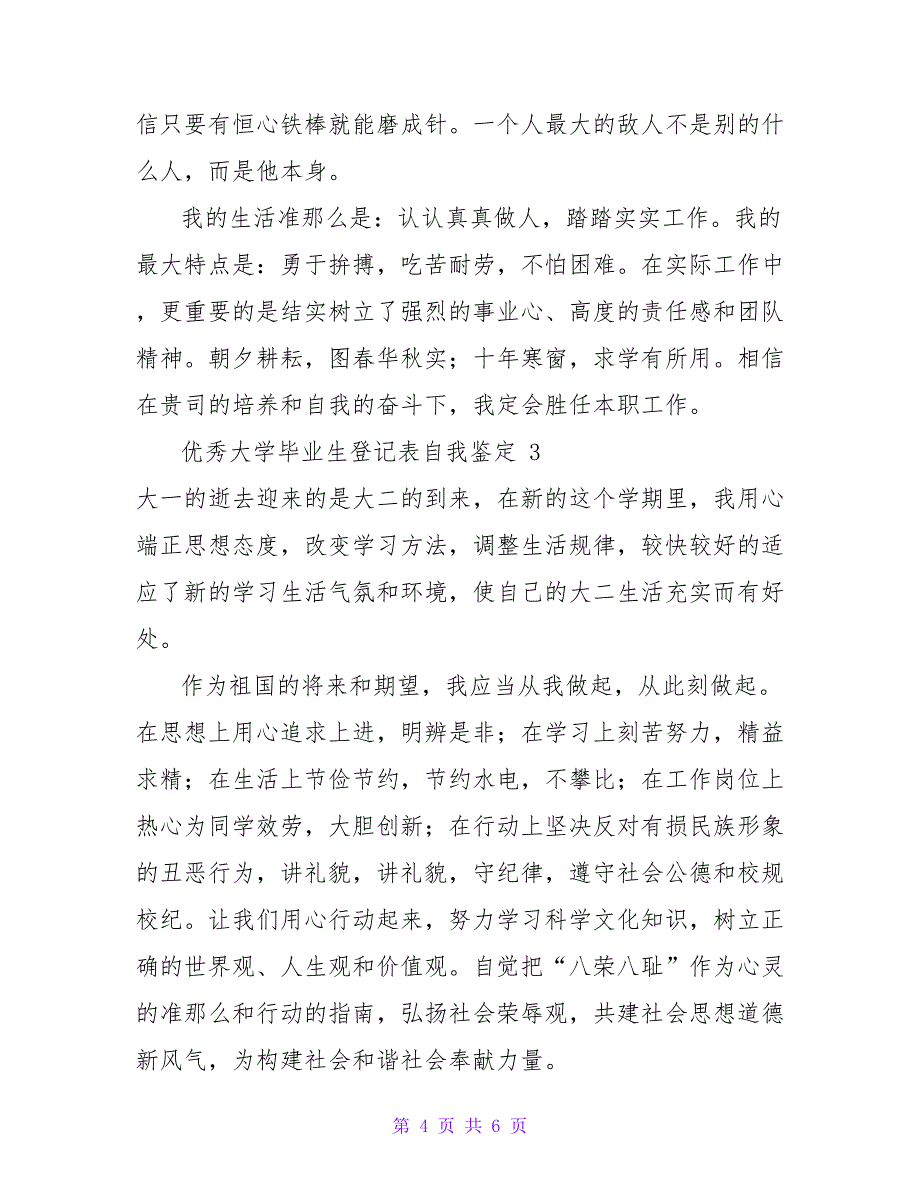 信只要有恒心铁棒就能磨成针。一个人最大的敌人不是别的什
么人，而是他本身。
我的生活准那么是：认认真真做人，踏踏实实工作。我的
最大特点是：勇于拚搏，吃苦耐劳，不怕困难。在实际工作中
，更重要的是结实树立了强烈的事业心、高度的责任感和团队
精神。朝夕耕耘，图春华秋实；十年寒窗，求学有所用。相信
在贵司的培养和自我的奋斗下，我定会胜任本职工作。
优秀大学毕业生登记表自我鉴定 3
大一的逝去迎来的是大二的到来，在新的这个学期里，我用心
端正思想态度，改变学习方法，调整生活规律，较快较好的适
应了新的学习生活气氛和环境，使自己的大二生活充实而有好
处。
作为祖国的将来和期望，我应当从我做起，从此刻做起。
在思想上用心追求上进，明辨是非；在学习上刻苦努力，精益
求精；在生活上节俭节约，节约水电，不攀比；在工作岗位上
热心为同学效劳，大胆创新；在行动上坚决反对有损民族形象
的丑恶行为，讲礼貌，讲礼貌，守纪律，遵守社会公德和校规
校纪。让我们用心行动起来，努力学习科学文化知识，树立正
确的世界观、人生观和价值观。自觉把“八荣八耻”作为心灵
的准那么和行动的指南，弘扬社会荣辱观，共建社会思想道德
新风气，为构建社会和谐社会奉献力量。
第 4 页 共 6 页